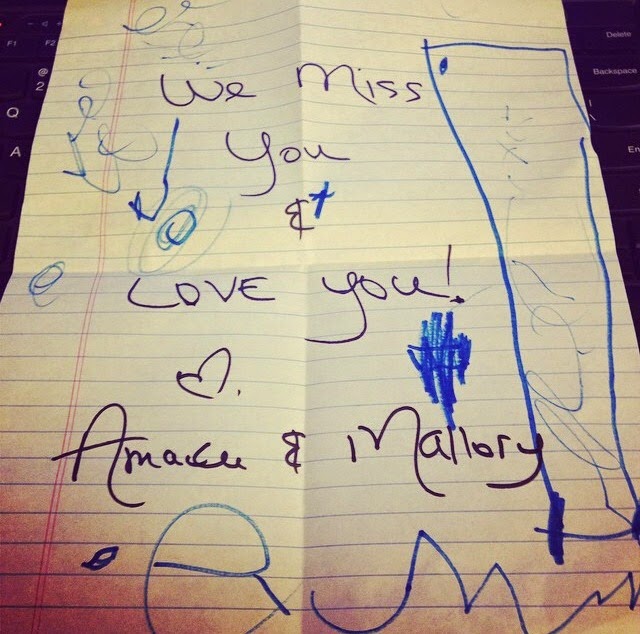 We Miss
You
&
LOVE you!
& Mallory
F1
F2
@
2
Q
A
Delete
Backspace